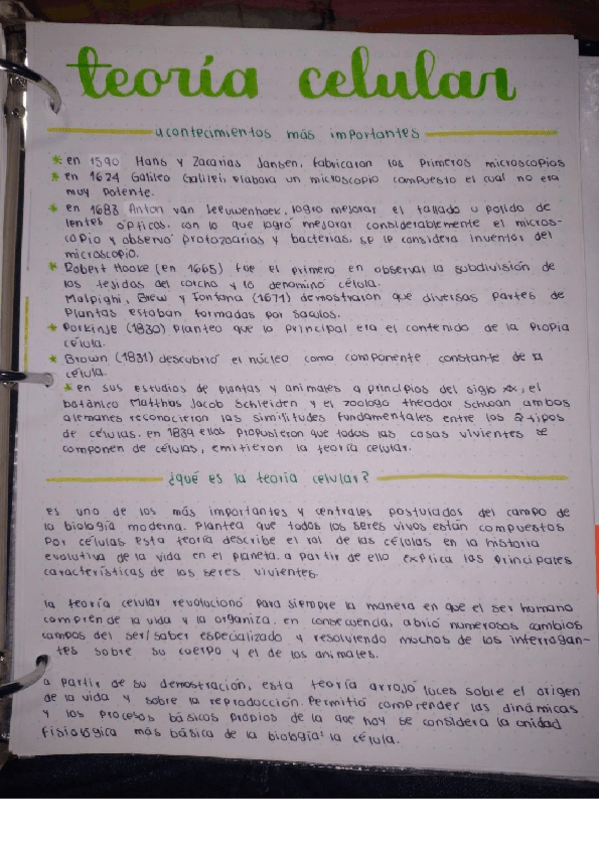 teoría celular
acontecimientos más importantes
* en 1590 Hans y Zacarias Jansen, fabricaron los primeros microscopios
* en 1624 Galileo Galilei, elabora un microscopio compuesto el cual no era
muy potente.
* en 1683 Anton van Leeuwenhoek, logro mejorar el tallado u polido de
lentes ópticas. con lo que logró mejorar considerablemente el micros-
copio y observó protozoarios y bacterias. se le considera inventor del
microscopio.
* Robert Hooke (en 1665) fue el primero en observar la subdivisión de
los tejidos del corcho y lo denominó célula.
Malpighi, Grew y Fontana (1671) demostraron que diversas partes de
plantas estaban formadas por saculos.
* Porkinje (1830) planteo que lo principal era el contenido de la propia
célula.
* Brown (1831) descubrió el núcleo como componente constante de la
célula.
* en sus estudios de plantas y animales a principios del siglo xx, el
botánico Matthus Jacob Schleiden y el zoologo theodor Schwan ambos
alemanes reconocieron las similitudes fundamentales entre los 2 tipos
de células. en 1839 ellos propusieron que todas las cosas vivientes se
componen de células, emitieron la teoría celular.
¿qué es la teoría celular?
es uno de los más importantes y centrales postulados del campo de
la biología moderna. Plantea que todos los seres vivos están compuestos
por células. esta teoría describe el rol de las células en la historia
evolutiva de la vida en el planeta. a partir de ello explica las principales
características de los seres vivientes.
la teoría celular revolucionó para siempre la manera en que el ser humano
comprende la vida y la organiza. en consecuencia, abrió numerosos cambios
campos del ser/saber especializado y resolviendo muchos de los interrogan-
tes sobre su cuerpo y el de los animales.
a partir de su demostración, esta teoría arrojó luces sobre el origen
de la vida y sobre la reproducción. Permitió comprender las dinámicas
y los procesos básicos propios de la que hoy se considera la unidad
fisiológica más básica de la biología: la célula.